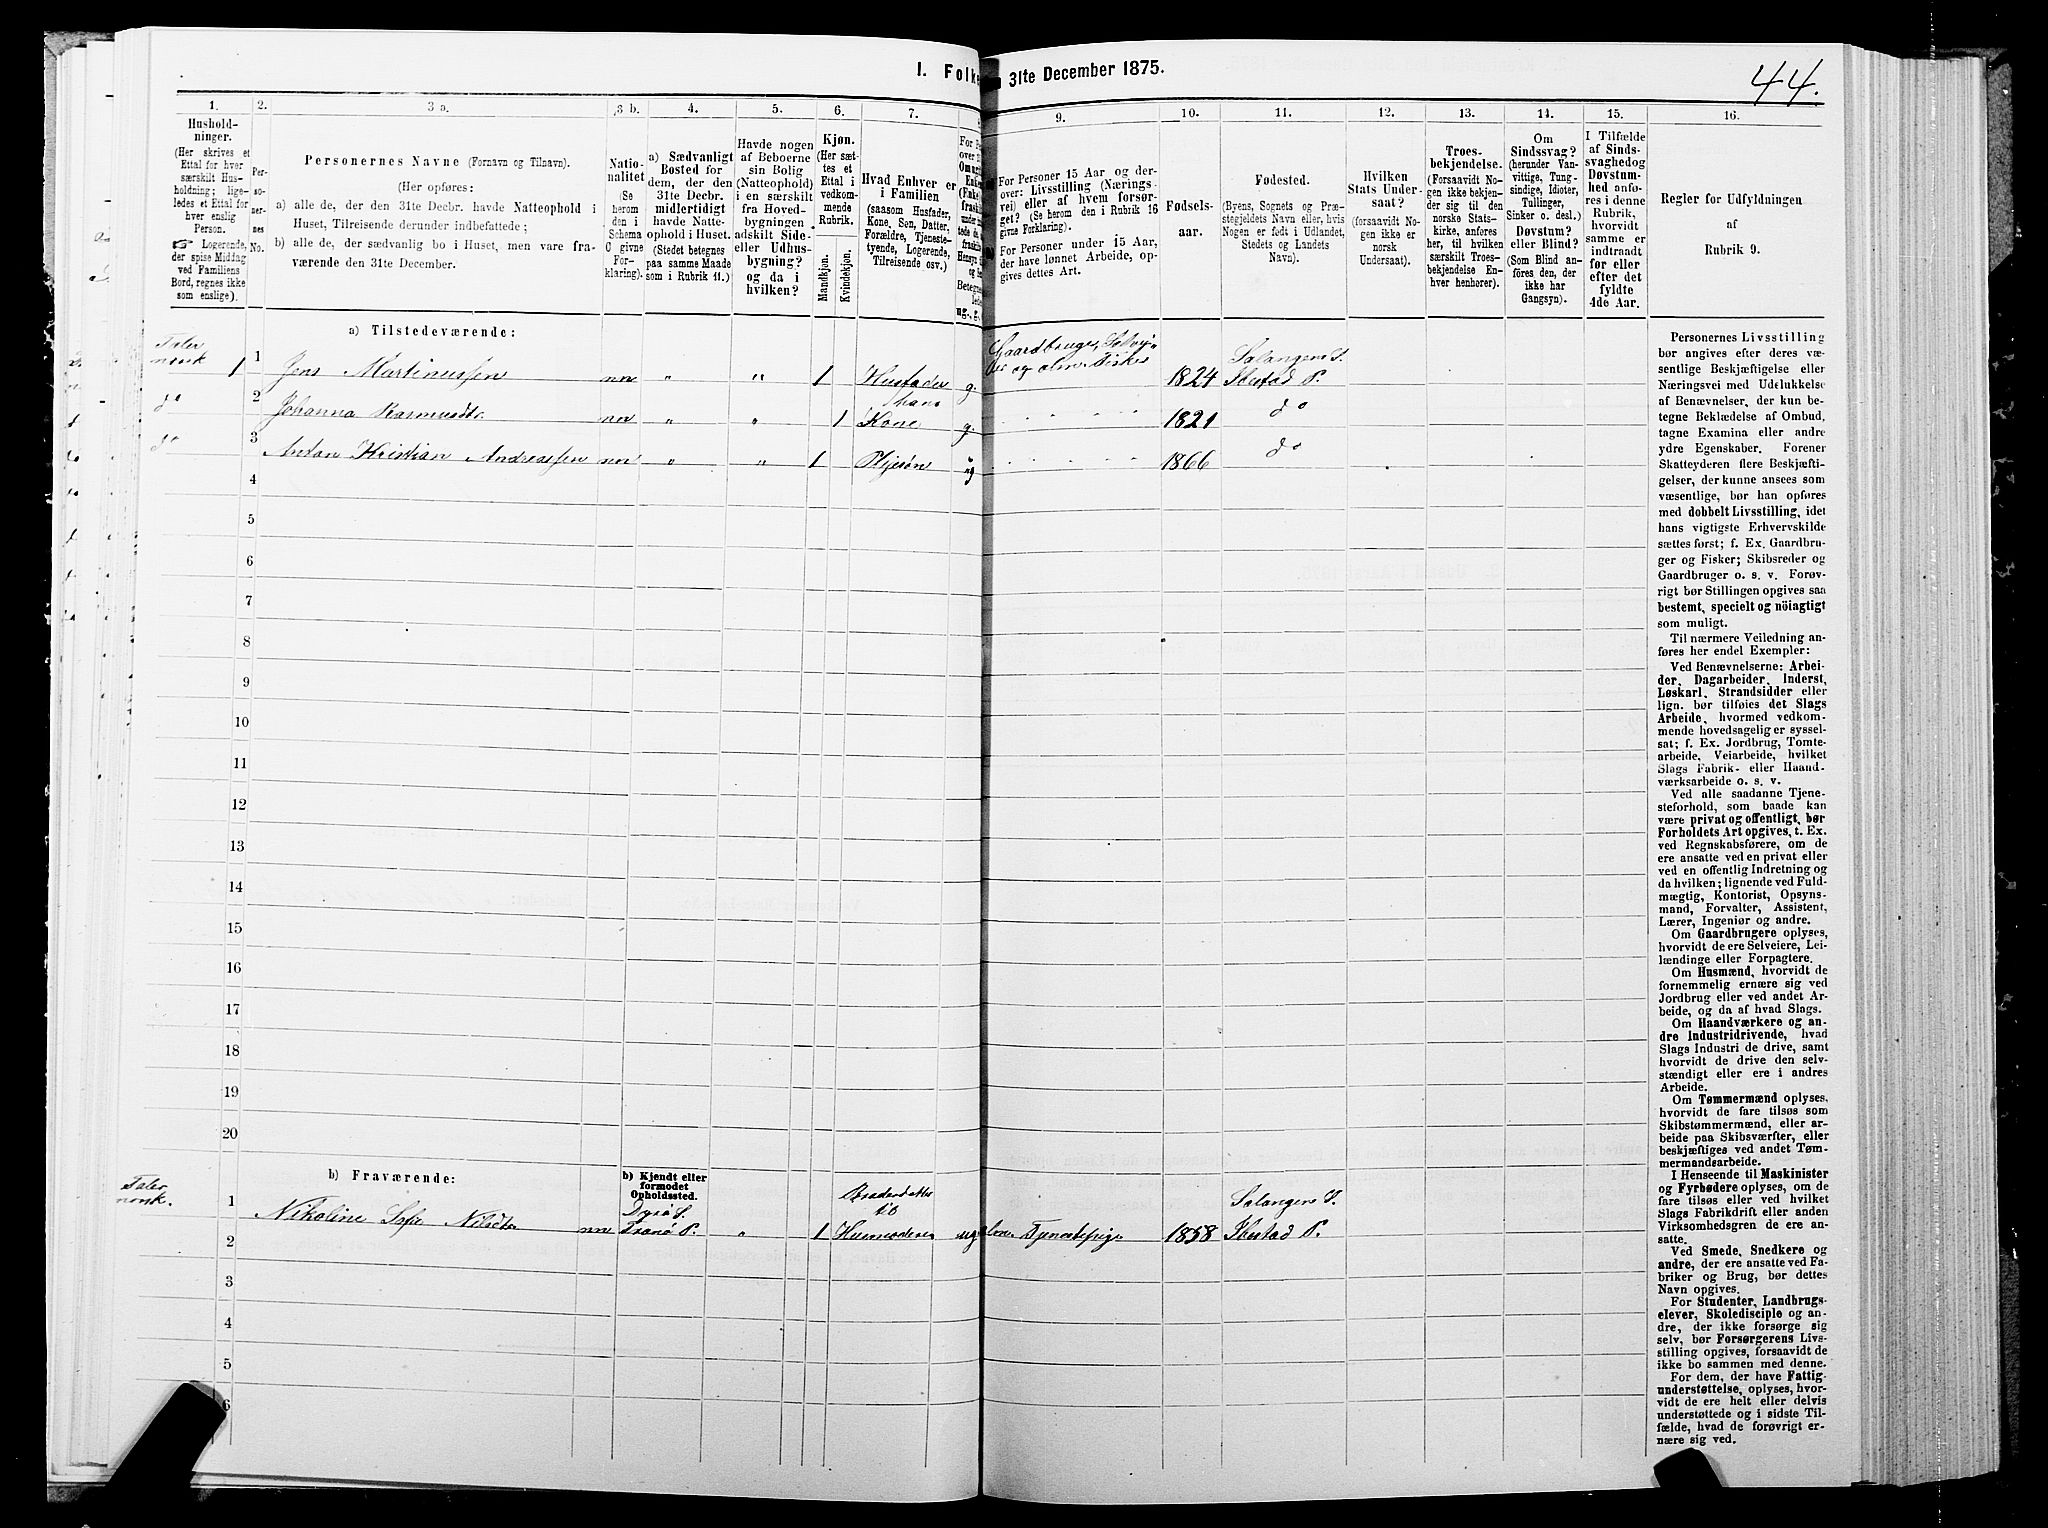 I. Folke
31te December 1875.
44.
1.
2.
3 a.
3 b.
4.
5.
6.
7.
9.
10.
11.
12.
13.
14.
15.
16.
Hushold-
ninger.
(Her skrives et
Ettal for hver
særskilt Hus-
holdning; lige-
ledes et Ettal for
hver enslig
Person.
☞ Logerende,
der spise Middag
ved Familiens
Bord, regnes ikke
som enslige).
Per-
so-
ner-
nes
No.
Personernes Navne (Fornavn og Tilnavn).
(Her opføres:
a) alle de, der den 31te Decbr. havde Natteophold i
Huset, Tilreisende derunder indbefattede;
b) alle de, der sædvanlig bo i Huset, men vare fra-
værende den 31te December.
Natio-
nalitet
(Se
herom
den i
Schema
C givne
For-
klaring).
a) Sædvanligt
Bosted for
dem, der den
31te Decbr.
midlertidigt
havde Natte-
ophold i Huset.
(Stedet betegnes
paa samme Maade
som i Rubrik 11.)
Havde nogen
af Beboerne
sin Bolig
(Natteophold)
i en særskilt
fra Hoved-
bygningen
adskilt Side-
eller Udhus-
bygning?
og da i
hvilken?
Kjøn.
(Her sæt-
tes et
Ettal i
vedkom-
mende
Rubrik.
Mandkjøn.
Kvindekjøn.
Hvad Enhver er
i Familien
(saasom Husfader,
Kone, Søn, Datter,
Forældre, Tjeneste-
tyende, Logerende,
Tilreisende osv.)
For Personer 15 Aar og der-
over: Livsstilling (Nærings-
vei) eller af hvem forsør-
get? (Se herom den i Rubrik 16
givne Forklaring).
For Personer under 15 Aar,
der have lønnet Arbeide, op-
gives dettes Art.
Fødsels-
aar.
Fødested.
(Byens, Sognets og Præ-
stegjeldets Navn eller, hvis
Nogen er født i Udlandet,
Stedets og Landets
Navn).
Hvilken
Stats Under-
saat?
(forsaavidt No-
gen ikke er
norsk
Undersaat).
Troes-
bekjendelse.
(Forsaavidt No-
gen ikke bekjen-
der sig til den
norske Stats-
kirke, anføres
her, til hvilken
særskilt Troes-
bekjendelse En-
hver henhører).
Om
Sindssvag?
(herunder Van-
vittige, Tung-
sindige, Idioter,
Tullinger,
Sinker o. desl.)
Døvstum?
eller Blind?
(Som Blind an-
føres den, der
ikke har
Gangsyn).
I Tilfælde
af Sinds-
svaghedog
Døvstum-
hed anfø-
res i denne
Rubrik,
hvorvidt
samme er
indtraadt
før eller
efter det
fyldte
4de Aar.
Regler for Udfyldningen
af
Rubrik 9.
a) Tilstedeværende:
Taler
norsk 1 1 Jens Martinussen nn " " 1 Husfader g. Gaardbruger, Selvei-
er og alm. Fisker 1824 Salangens S.
Ibestad P.
do 2 Johanna Rasmusdtr. nn " " 1 hans
Kone g. 1821 do
do 3 Antan Kristian Andreassen nn " " 1 Plejesøn ug 1866 do
4
5
6
7
8
9
10
11
12
13
14
15
16
17
18
19
20
b) Fraværende:
b) Kjendt eller
formodet
Opholdssted.
Taler
norsk. 1 Nikoline Sofie Nilsdtr nn Dyrø S.
Tranø P. " 1 Broderdatter
til
Husmoderen ug alm. Tjenestepige 1858 Salangens S.
Ibestad P.
2
3
4
5
6
Personernes Livsstilling
bør angives efter deres væ-
sentlige Beskjæftigelse eller
Næringsvei med Udelukkelse
af Benævnelser, der kun be-
tegne Beklædelse af Ombud,
tagne Examina eller andre
ydre Egenskaber. Forener
Skatteyderen flere Beskjæfti-
gelser, der kunne ansees som
væsentlige, bør han opføres
med dobbelt Livsstilling, idet
hans vigtigste Erhvervskilde
sættes først; f. Ex. Gaardbru-
ger og Fisker; Skibsreder og
Gaardbruger o. s. v. Forøv-
rigt bør Stillingen opgives saa
bestemt, specielt og nöiagtigt
som muligt.
Til nærmere Veiledning an-
føres her endel Exempler:
Ved Benævnelserne: Arbei-
der, Dagarbeider, Inderst,
Løskarl, Strandsidder eller
lign. bør tilføies det Slags
Arbeide, hvormed vedkom-
mende hovedsagelig er syssel-
sat; f. Ex. Jordbrug, Tomte-
arbeide, Veiarbeide, hvilket
Slags Fabrik- eller Haand-
værksarbeide o. s. v.
Ved alle saadanne Tjene-
steforhold, som baade kan
være privat og offentligt, bør
Forholdets Art opgives, t. Ex.
ved Regnskabsførere, om de
ere ansatte ved en privat eller
ved en offentlig Indretning og
da hvilken; lignende ved Fuld-
mægtig, Kontorist, Opsyns-
mand, Forvalter, Assistent,
Lærer, Ingeniør og andre.
Om Gaardbrugere oplyses,
hvorvidt de ere Selveiere, Lei-
lændinge eller Forpagtere.
Om Husmænd, hvorvidt de
fornemmelig ernære sig ved
Jordbrug eller ved andet Ar-
beide, og da af hvad Slags.
Om Haandværkere og an-
dre Industridrivende, hvad
Slags Industri de drive, samt
hvorvidt de drive den selv-
stændigt eller ere i andres
Arbeide.
Om Tømmermænd oplyses,
hvorvidt de fare tilsøs som
Skibstømmermænd, eller ar-
beide paa Skibsværfter, eller
beskjæftiges ved andet Tøm-
mermandsarbeide.
I Henseende til Maskinister
og Fyrbødere oplyses, om de
fare tilsøs eller ved hvilket
Slags Fabrikdrift eller anden
Virksomhedsgren de ere an-
satte.
Ved Smede, Snedkere og
andre, der ere ansatte ved Fa-
briker og Brug, bør dettes
Navn opgives.
For Studenter, Landbrugs-
elever, Skoledisciple og an-
dre, der ikke forsørge sig
selv, bør Forsørgerens Livs-
stilling opgives, forsaavidt de
ikke bo sammen med denne.
For dem, der have Fattig-
understøttelse, oplyses, hvor-
vidt de ere helt eller delvis
understøttede og i sidste Til-
fælde, hvad de forøvrigt er-
nære sig ved.